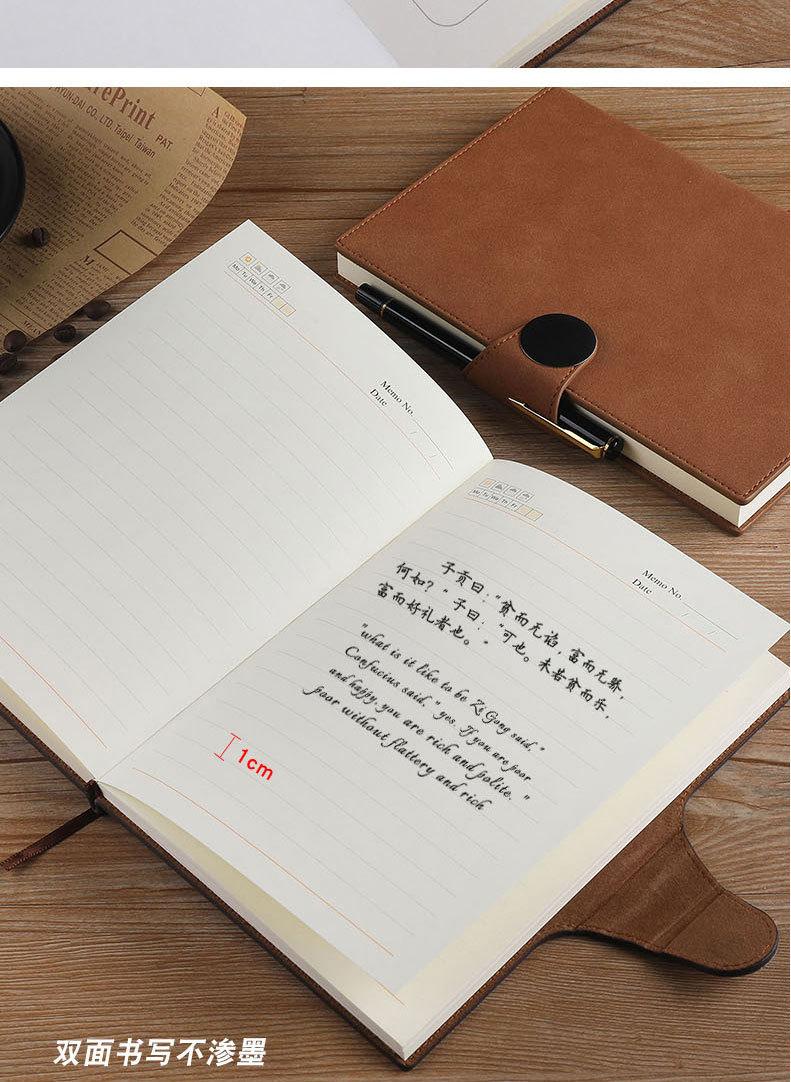 ePrint
PAT.
HYUN-DAI CO. LTD, Taipei, Taiwan
Mo Tu We Th Fr
Memo No.
Date / /
Mo Tu We Th Fr
Memo No.
Date / /
子贡曰：“贫而无谄，富而无骄，
何如？”子曰：“可也。未若贫而乐，
富而好礼者也。”
"what is it like to be Zi Gong said,"
Confucius said, "yes. If you are poor
and happy, you are rich and polite. "
poor without flattery and rich
1cm
双面书写不渗墨